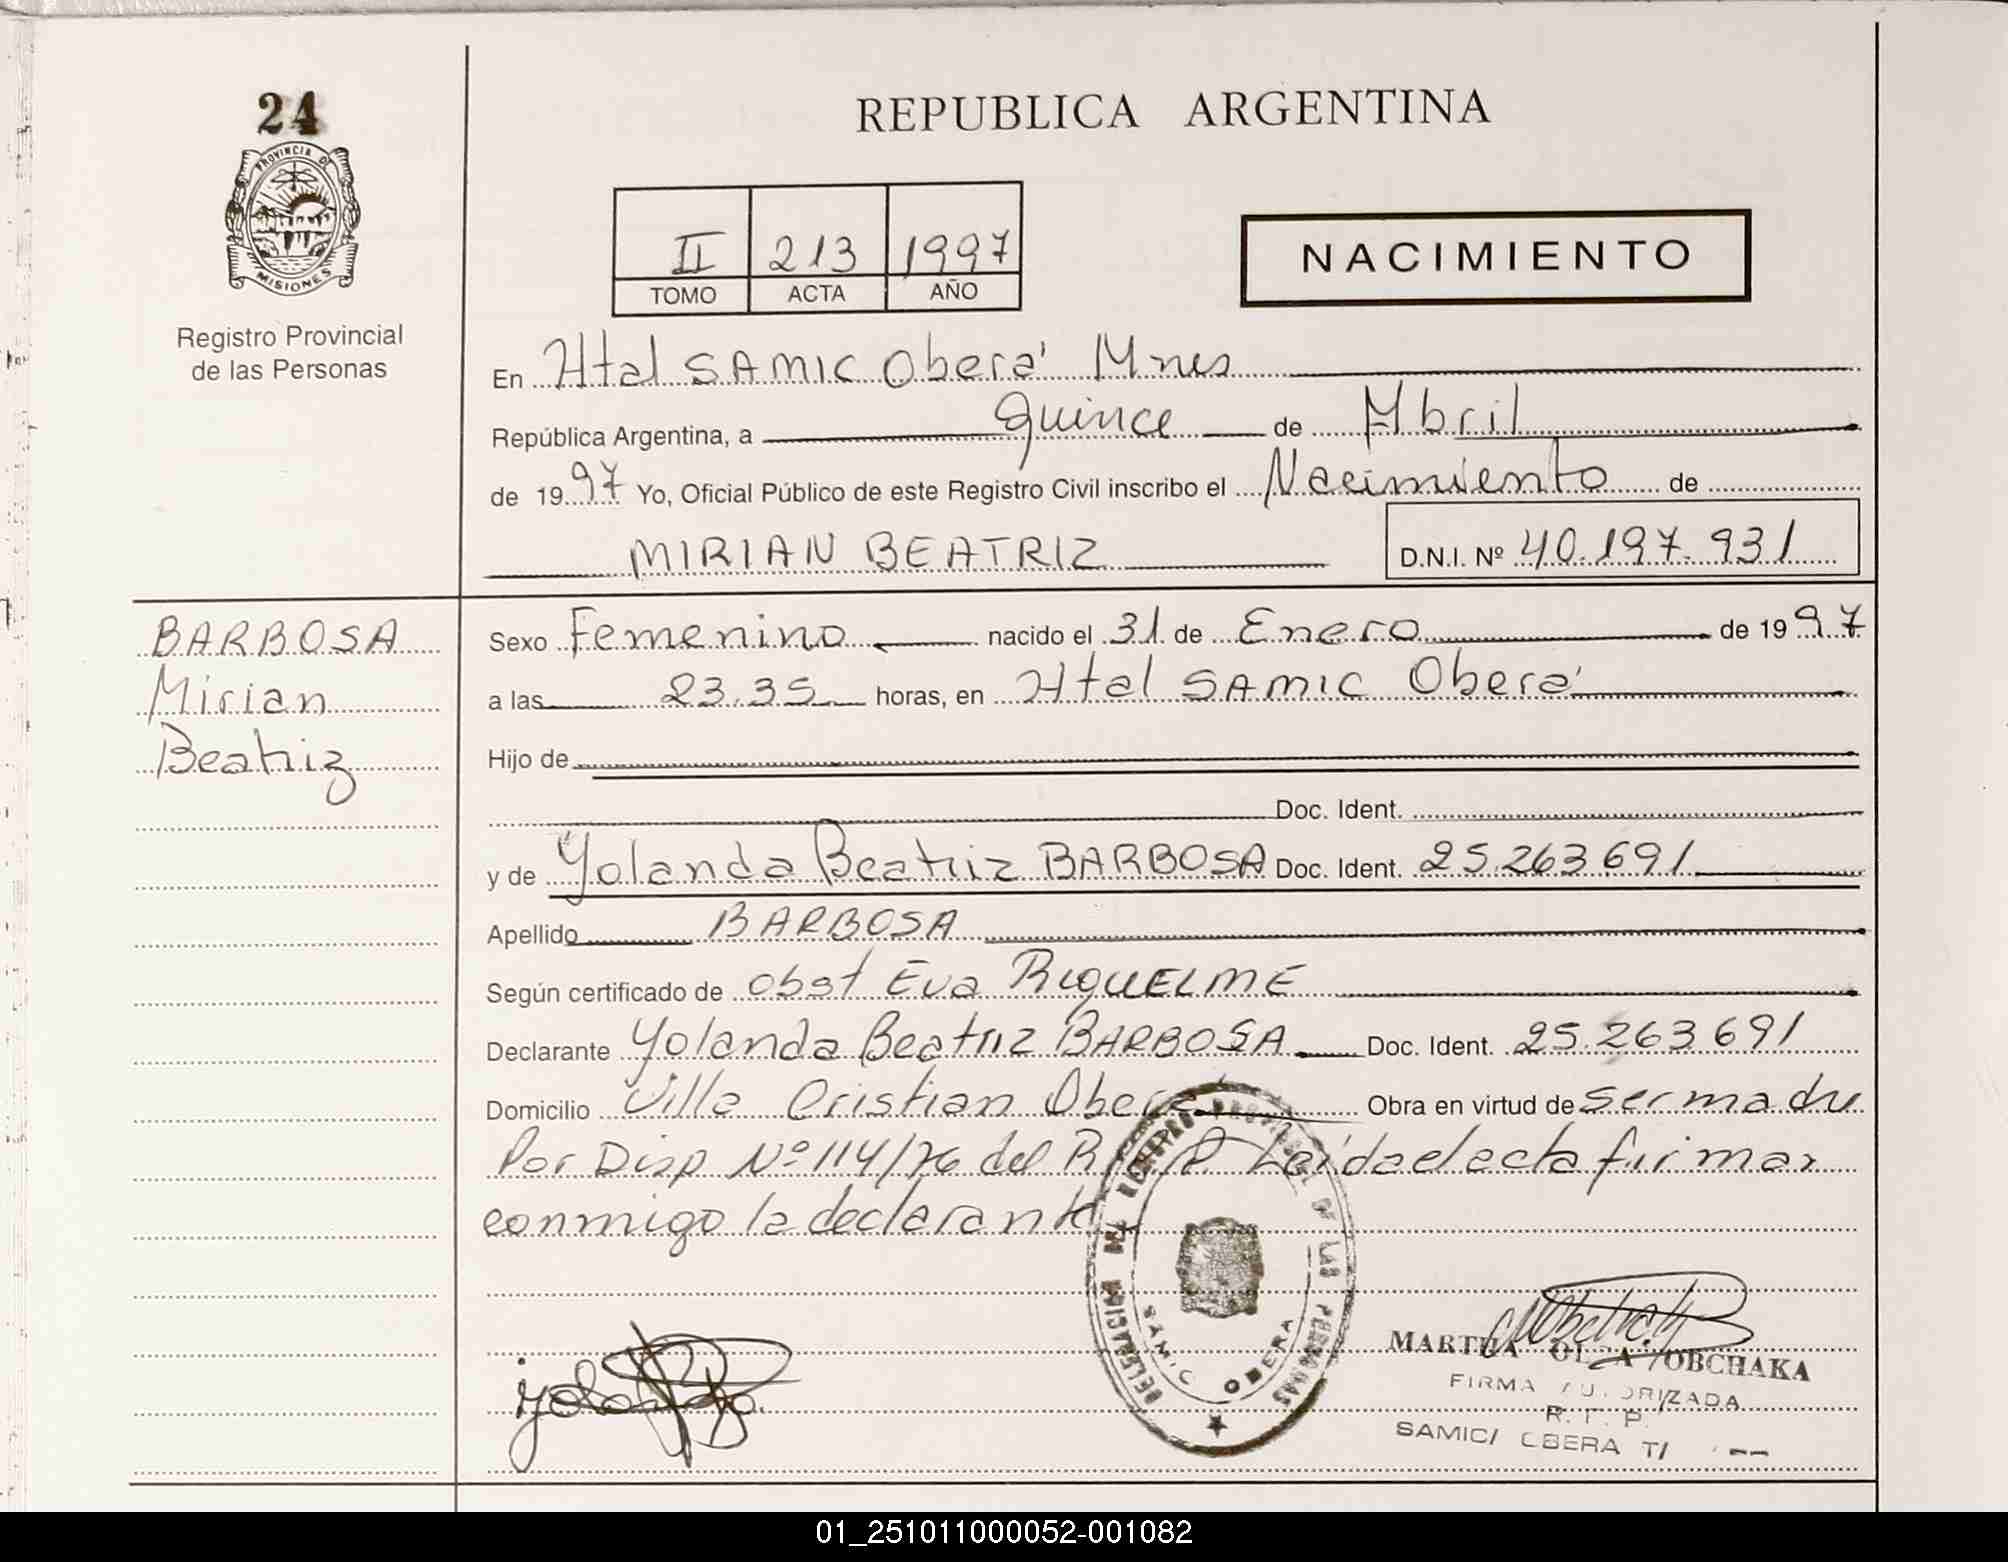 24
PROVINCIA D
MISIONES
Registro Provincial
de las Personas
REPUBLICA ARGENTINA
II 213 1997
TOMO ACTA AÑO
NACIMIENTO
En Htal SAMIC Oberá Mnes
República Argentina, a quince de Abril
de 1997 Yo, Oficial Público de este Registro Civil inscribo el Nacimiento de
MIRIAN BEATRIZ D.N.I. Nº 40.197.931
BARBOSA
Mirian
Beatriz
Sexo Femenino nacido el 31 de Enero de 1997
a las 23.35 horas, en Htal SAMIC Oberá
Hijo de
Doc. Ident.
y de Yolanda Beatriz BARBOSA Doc. Ident. 25.263691
Apellido BARBOSA
Según certificado de Obst Eva RIQUELME
Declarante Yolanda Beatriz BARBOSA Doc. Ident. 25.263691
Domicilio Villa Cristian Oberá Obra en virtud de ser madre
Por Disp Nº 114/76 del R.P.P. Leída el acta firman
conmigo la declarante
DELEGACION DEL REGISTRO PROVINCIAL DE LAS PERSONAS
SAMIC OBERA
MARTHA OLGA OBCHAKA
FIRMA AUTORIZADA
R. P. P.
SAMIC/ OBERA
01_251011000052-001082